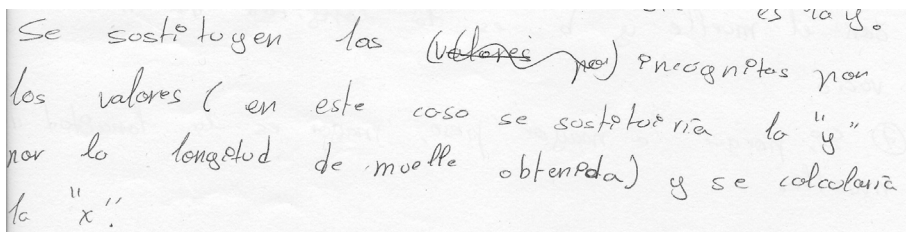 es la y.
Se sostitoyen las (valores por) incognitas por
los valores (en este caso se sostitoiría la "y"
por la longitud de moelle obtenida) y se calcolaría
la "x".